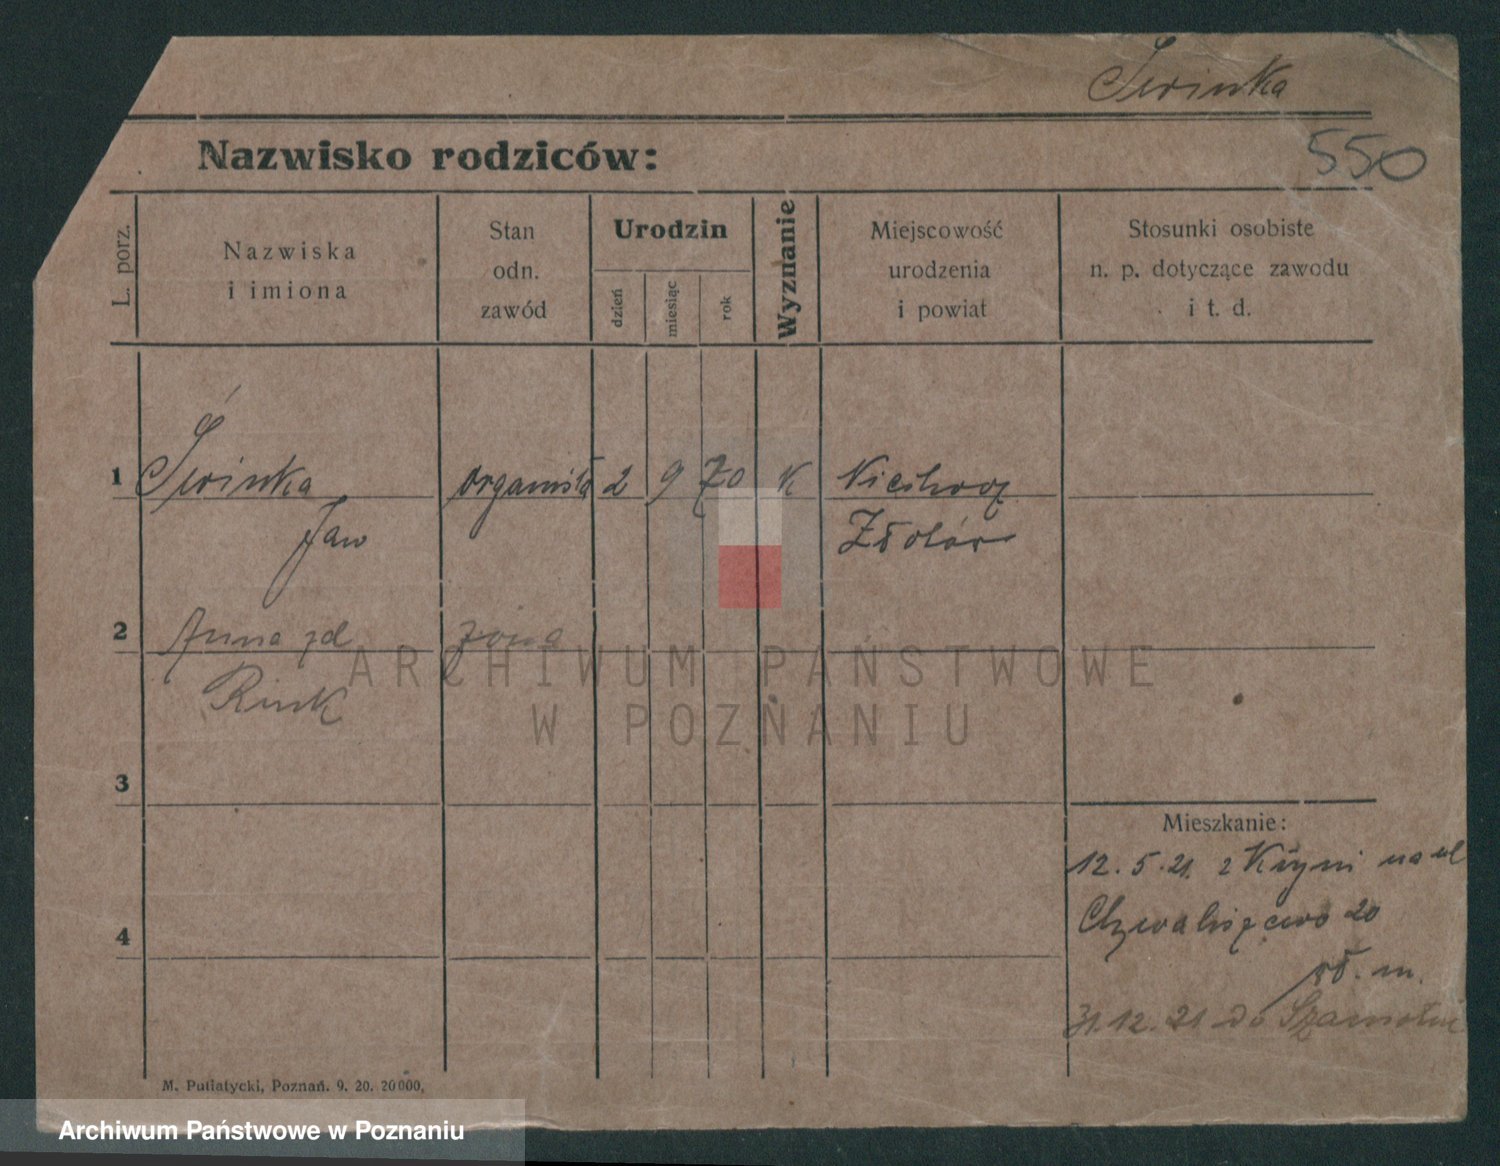 Świnka
550
Nazwisko rodziców:
L. porz.
Nazwiska
i imiona
Stan
odn.
zawód
Urodzin
dzień
miesiąc
rok
Wyznanie
Miejscowość
urodzenia
i powiat
Stosunki osobiste
n. p. dotyczące zawodu
i t. d.
1 Świnka organista 2 9 70 K
Jan Złotów
2 Anna zd żona
Rink
ARCHIWUM PAŃSTWOWE
W POZNANIU
3
Mieszkanie:
12.5.21. z na ul
Chwaliszewo 20
4
m.
31.12.21 do Szamotuł
M. Putiatycki, Poznań. 9. 20. 20000.
Archiwum Państwowe w Poznaniu